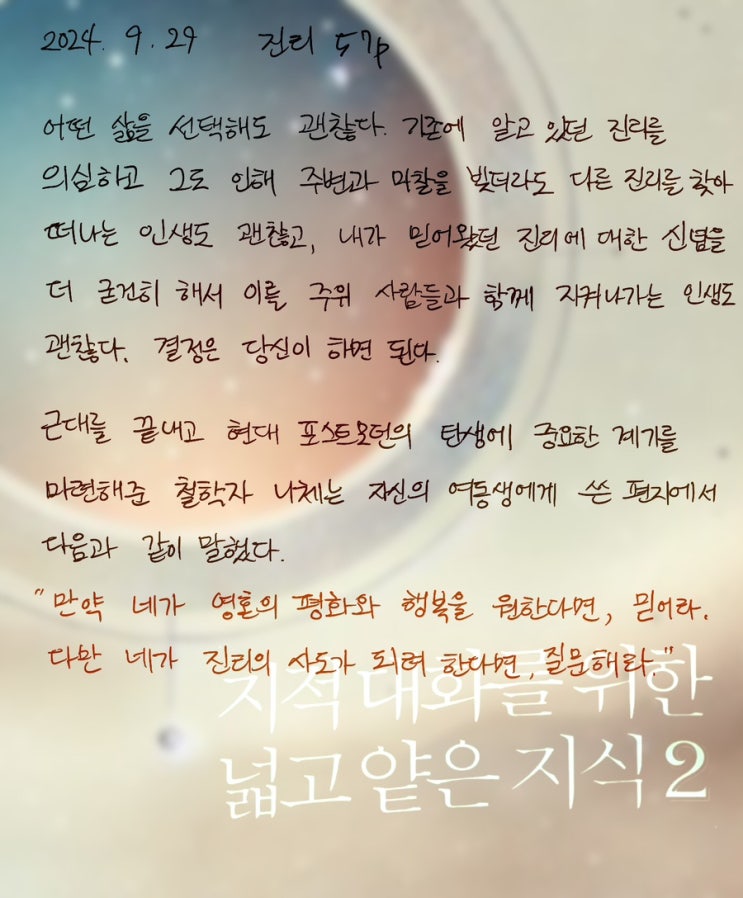 2024. 9. 29 진리 57p
어떤 삶을 선택해도 괜찮다. 기존에 알고 있던 진리를
의심하고 그로 인해 주변과 마찰을 빚더라도 다른 진리를 찾아
떠나는 인생도 괜찮고, 내가 믿어왔던 진리에 대한 신념을
더 굳건히 해서 이를 주위 사람들과 함께 지켜나가는 인생도
괜찮다. 결정은 당신이 하면 된다.
근대를 끝내고 현대 포스트모던의 탄생에 중요한 계기를
마련해준 철학자 니체는 자신의 여동생에게 쓴 편지에서
다음과 같이 말했다.
"만약 네가 영혼의 평화와 행복을 원한다면, 믿어라.
다만 네가 진리의 사도가 되려 한다면, 질문해라."
지적 대화를 위한
넓고 얕은 지식 2